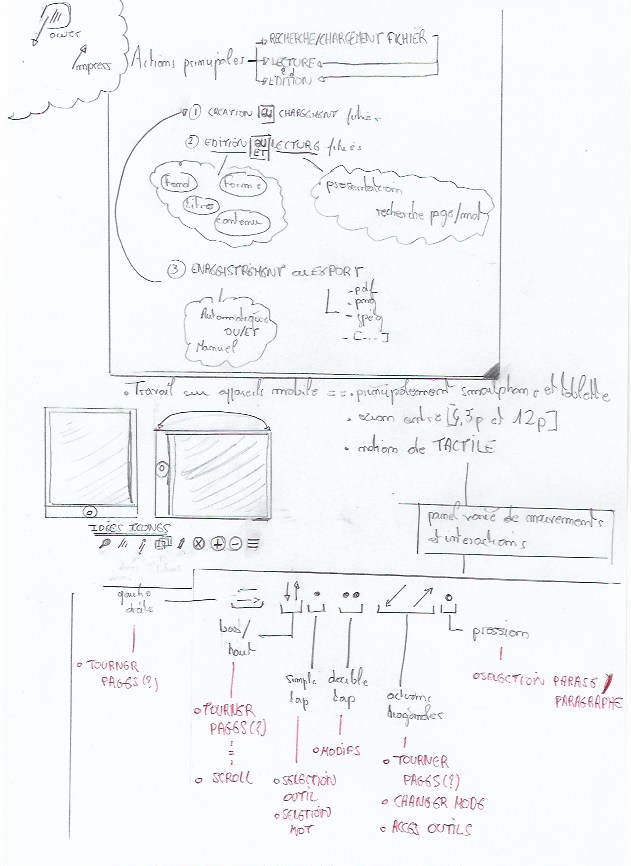 Power
Impress
Actions principales
RECHERCHE/CHARGEMENT FICHIER
LECTURE
EDITION
① CREATION OU CHARGEMENT fichier
② EDITION OU ET LECTURE fichiers
fond
forme
titre
contenu
presentation
recherche page/mot
③ ENREGISTREMENT ou EXPORT
Automatique
OU/ET
Manuel
- pdf
- png
- jpeg
- [....]
• Travail sur appareils mobile == • principalement smartphone et tablette
• écran entre [4,3p et 12p]
• notion de TACTILE
IDÉES ICONES
panel varié de mouvements
et interactions
gauche
droite
bas/
haut
simple
tap
double
tap
actions
diagonales
pression
• TOURNER
PAGES(?)
• TOURNER
PAGES(?)
=
• SCROLL
• SELECTION
OUTIL
• SELETION
MOT
• MODIFS
• TOURNER
PAGES(?)
• CHANGER MODE
• ACCES OUTILS
• SELECTION PHRASE /
PARAGRAPHE